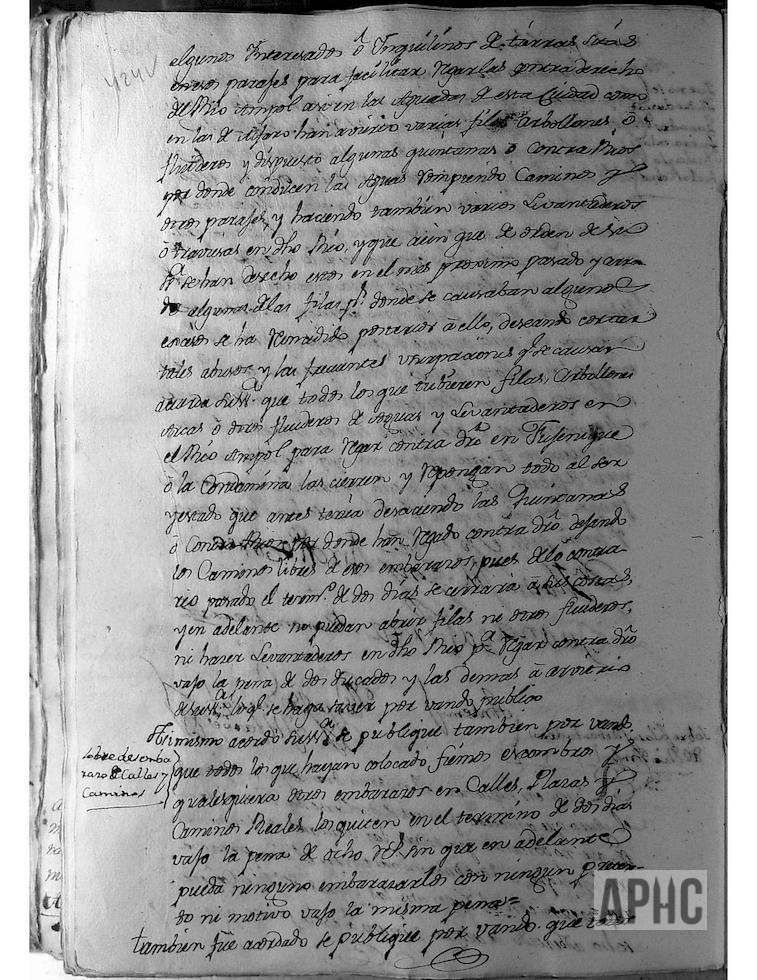 424v
algunos Interesados ô Inquilinos de tierras sitas
en esos parajes para facilitar regarlas contra derecho
del Rio Aripol asi en las Aguadas de esta Ciudad como
en las de Alfaro han avierto varias filas Arbollones, ô
fluideros y dispuesto algunas quintanas ô Contra Rios
por donde conducen las Aguas rompiendo Caminos y
otros parajes, y haciendo tambien varios Levantaderos
ô travesas en dho Rio, y que aun que de orden de su
Sª se han desecho estos en el mes proximo pasado y cerra
do algunas de las filas pr donde se causaban algunos
excesos se ha remedido posterior â ello, deseando cortar
tales abusos y las frecuentes usurpaciones qe se causan
acuerda suSSª que todos los que tubieren filas, Arbollones
Arcas ô otros fluideros de Aguas y Levantaderos en
el Rio para regar contra dro en
ô la Condamina las cierren y repongan todo al ser
y estado que antes tenia desaciendo las Quintanas
ô Contra Rios por donde han regado contra dro, dejando
los Caminos libres de esos embarazos, pues de lo contra
rio pasado el termº de dos dias se cerrara â sus costas,
y en adelante no puedan abrir filas ni otros fluideros,
ni hazer Levantaderos en dho Rio pª regar contra dro
vajo la pena de dos ducados y las demas â arvitrio
de suSSª lo qe se haga saver por vando publico
Asimismo acordo suSSª se publique tambien por vando,
sobre desemba
razo de Calles y
Caminos
que todos los que hayan colocado fiemos escombros y
qualesquiera otros embarazos en Calles, Plazas y
Caminos Reales los quiten en el termino de dos dias
vajo la pena de ocho rs sin que en adelante
pueda ninguno embarazarlos con ningun pretex
to ni motivo vajo la misma pena =
tambien fue acordado se publique por vando que
APHC